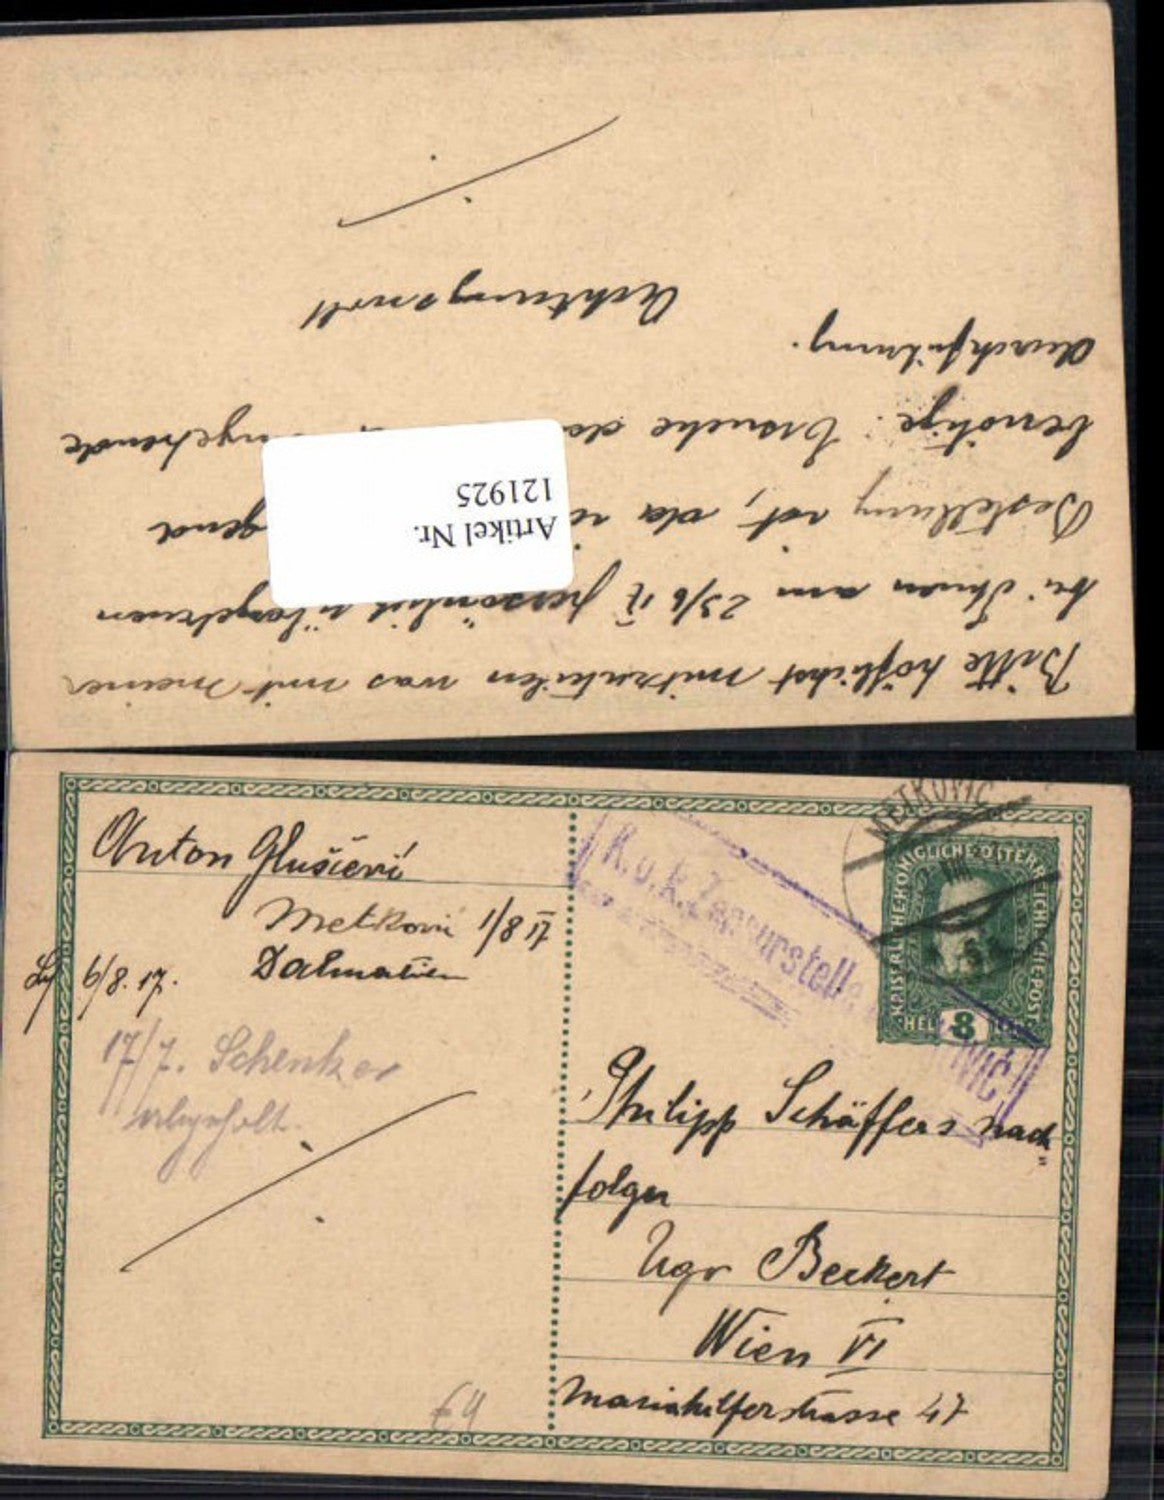 Bitte höflichst mitzuteilen was mit meiner
bei Ihnen am 23/6 17 persönlich übergebenen
Bestellung ist, da
benötige. Ersuche
durchführung.
Achtungsvoll
Artikel Nr.
121925
Anton Glušćević
Metković 1/8 17
Dalmatien
6/8. 17.
17/7. Schenker
abgeholt.
K.u.k. Zensurstelle
METKOVIĆ
KAISERLICHE KÖNIGLICHE ÖSTERREICHISCHE POST
HELLER 8
Philipp Schäffers Nach=
folger
Ugo Beckert
Wien VI
Mariahilferstrasse 47